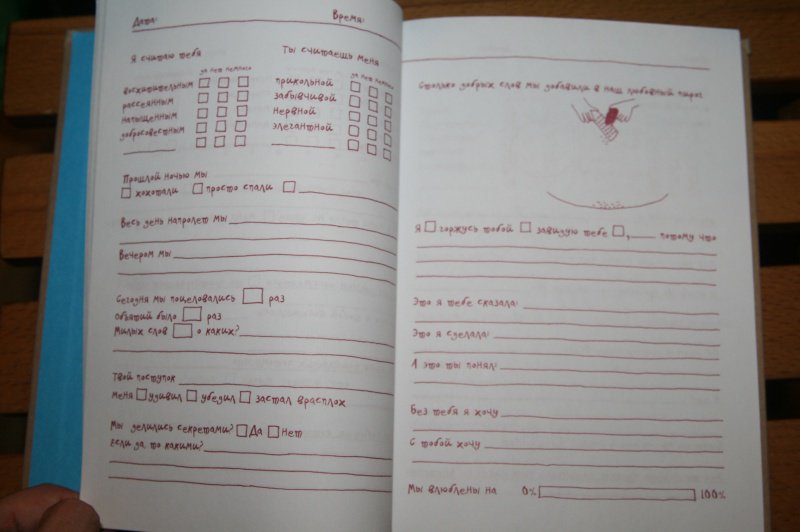 Дата: Время:
Я считаю тебя
да нет немного
восхитительным
рассеянным
напыщенным
добросовестным
Ты считаешь меня
да нет немного
прикольной
забывчивой
нервной
элегантной
Прошлой ночью мы
хохотали просто спали
Весь день напролет мы
Вечером мы
Сегодня мы поцеловались раз
Объятий было раз
Милых слов о каких?
Твой поступок
меня удивил убедил застал врасплох
Мы делились секретами? Да Нет
Если да, то какими?
Столько добрых слов мы добавили в наш любовный пирог
Я горжусь тобой завидую тебе , потому что
Это я тебе сказала:
Это я сделала:
А это ты понял:
Без тебя я хочу
С тобой хочу
Мы влюблены на 0% 100%